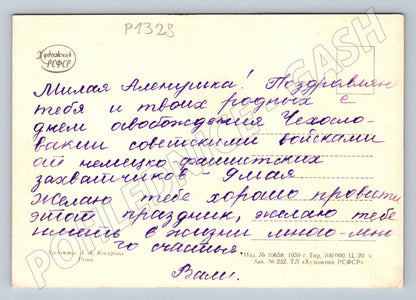 P1328
Художник
РСФСР
Милая Аленушка! Поздравляем
тебя и твоих родных с
днем освобождения Чехосло-
вакии советскими войсками
от немецко фашистских
захватчиков 9 мая.
Желаю тебе хорошо провести
этот праздник, желаю тебе
иметь в жизни много-мно
го счастья.
Вали.
Художник А. И. Кострова
Изд. № 10658. 1959 г. Тир. 100 000. Ц. 20 к.
Зак. № 232. ТЛ «Художник РСФСР»
POHLEDNICE - SASH